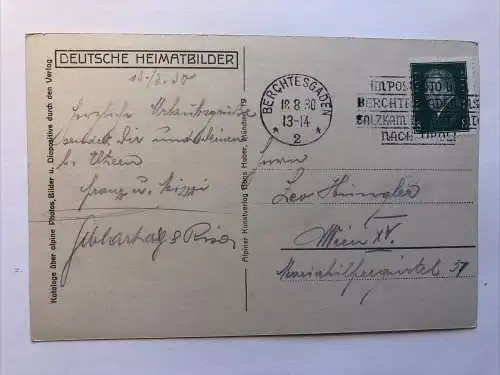 DEUTSCHE HEIMATBILDER
18./8.30
Herzliche Urlaubsgrüße
sendet Dir und Deinen
l. Eltern
Franz u.
Kataloge über alpine Photos, Bilder u. Diapositive durch den Verlag
Alpiner Kunstverlag Hans Huber, München 19
BERCHTESGADEN
18.8.30
13-14
* 2 *
IM POSTAUTO VON
BERCHTESGADEN INS
SALZKAM
NACH TIROL!
Herrn
Leo
Wien XV.
Mariahilfergürtel 37